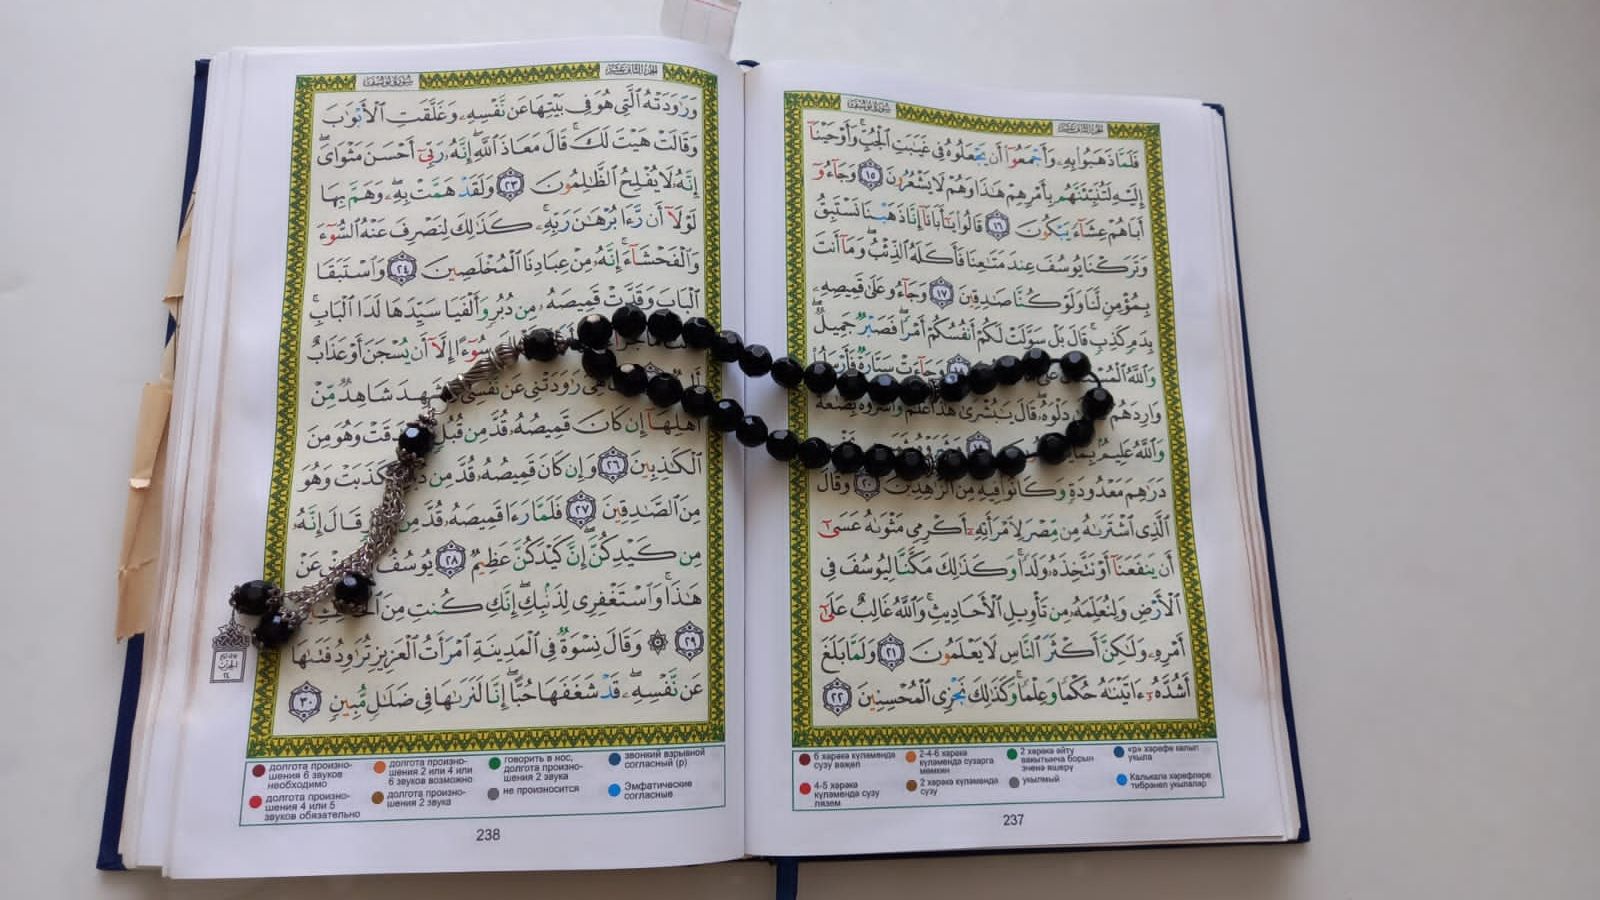 سُورَةُ يُوسُفَ
الجزء الثاني عشر
فَلَمَّا ذَهَبُوا۟ بِهِۦ وَأَجْمَعُوٓا۟ أَن يَجْعَلُوهُ فِى غَيَـٰبَتِ ٱلْجُبِّ ۚ وَأَوْحَيْنَآ
إِلَيْهِ لَتُنَبِّئَنَّهُم بِأَمْرِهِمْ هَـٰذَا وَهُمْ لَا يَشْعُرُونَ ١٥ وَجَآءُو
أَبَاهُمْ عِشَآءً يَبْكُونَ ١٦ قَالُوا۟ يَـٰٓأَبَانَآ إِنَّا ذَهَبْنَا نَسْتَبِقُ
وَتَرَكْنَا يُوسُفَ عِندَ مَتَـٰعِنَا فَأَكَلَهُ ٱلذِّئْبُ ۖ وَمَآ أَنتَ
بِمُؤْمِنٍ لَّنَا وَلَوْ كُنَّا صَـٰدِقِينَ ١٧ وَجَآءُو عَلَىٰ قَمِيصِهِۦ
بِدَمٍ كَذِبٍ ۚ قَالَ بَلْ سَوَّلَتْ لَكُمْ أَنفُسُكُمْ أَمْرًا ۖ فَصَبْرٌ جَمِيلٌ ۖ
وَٱللَّهُ وَجَآءَتْ سَيَّارَةٌ فَأَرْسَلُوا۟
وَارِدَهُمْ دَلْوَهُۥ ۖ قَالَ يَـٰبُشْرَىٰ هَـٰذَا غُلَـٰمٌ ۚ وَأَسَرُّوهُ بِضَـٰعَةً ۚ
وَٱللَّهُ عَلِيمٌۢ
دَرَٰهِمَ مَعْدُودَةٍ وَكَانُوا۟ فِيهِ مِنَ ٱلزَّٰهِدِينَ ٢٠ وَقَالَ
ٱلَّذِى ٱشْتَرَىٰهُ مِن مِّصْرَ لِٱمْرَأَتِهِۦٓ أَكْرِمِى مَثْوَىٰهُ عَسَىٰٓ
أَن يَنفَعَنَآ أَوْ نَتَّخِذَهُۥ وَلَدًا ۚ وَكَذَٰلِكَ مَكَّنَّا لِيُوسُفَ فِى
ٱلْأَرْضِ وَلِنُعَلِّمَهُۥ مِن تَأْوِيلِ ٱلْأَحَادِيثِ ۚ وَٱللَّهُ غَالِبٌ عَلَىٰٓ
أَمْرِهِۦ وَلَـٰكِنَّ أَكْثَرَ ٱلنَّاسِ لَا يَعْلَمُونَ ٢١ وَلَمَّا بَلَغَ
أَشُدَّهُۥٓ ءَاتَيْنَـٰهُ حُكْمًا وَعِلْمًا ۚ وَكَذَٰلِكَ نَجْزِى ٱلْمُحْسِنِينَ ٢٢
6 хәрәкә күләмендә сузу ваҗеп
2-4-6 хәрәкә күләмендә сузарга мөмкин
2 хәрәкә әйтү вакытынча борын эченә яшерү
«р» хәрефе калын укыла
4-5 хәрәкә күләмендә сузу лязем
2 хәрәкә күләмендә сузу
укылмый
Калькалә хәрефләре тибрәнеп укылалар
237
سُورَةُ يُوسُفَ
الجزء الثاني عشر
وَرَٰوَدَتْهُ ٱلَّتِى هُوَ فِى بَيْتِهَا عَن نَّفْسِهِۦ وَغَلَّقَتِ ٱلْأَبْوَٰبَ
وَقَالَتْ هَيْتَ لَكَ ۚ قَالَ مَعَاذَ ٱللَّهِ ۖ إِنَّهُۥ رَبِّىٓ أَحْسَنَ مَثْوَاىَ ۖ
إِنَّهُۥ لَا يُفْلِحُ ٱلظَّـٰلِمُونَ ٢٣ وَلَقَدْ هَمَّتْ بِهِۦ ۖ وَهَمَّ بِهَا
لَوْلَآ أَن رَّءَا بُرْهَـٰنَ رَبِّهِۦ ۚ كَذَٰلِكَ لِنَصْرِفَ عَنْهُ ٱلسُّوٓءَ
وَٱلْفَحْشَآءَ ۚ إِنَّهُۥ مِنْ عِبَادِنَا ٱلْمُخْلَصِينَ ٢٤ وَٱسْتَبَقَا
ٱلْبَابَ وَقَدَّتْ قَمِيصَهُۥ مِن دُبُرٍ وَأَلْفَيَا سَيِّدَهَا لَدَا ٱلْبَابِ ۚ
سُوٓءًا إِلَّآ أَن يُسْجَنَ أَوْ عَذَابٌ
هِىَ رَٰوَدَتْنِى عَن نَّفْسِى ۚ وَشَهِدَ شَاهِدٌ مِّنْ
أَهْلِهَآ إِن كَانَ قَمِيصُهُۥ قُدَّ مِن قُبُلٍ وَهُوَ مِنَ
ٱلْكَـٰذِبِينَ ٢٦ وَإِن كَانَ قَمِيصُهُۥ قُدَّ مِن فَكَذَبَتْ وَهُوَ
مِنَ ٱلصَّـٰدِقِينَ ٢٧ فَلَمَّا رَءَا قَمِيصَهُۥ قُدَّ مِن قَالَ إِنَّهُۥ
مِن كَيْدِكُنَّ ۖ إِنَّ كَيْدَكُنَّ عَظِيمٌ ٢٨ يُوسُفُ عَنْ
هَـٰذَا ۚ وَٱسْتَغْفِرِى لِذَنۢبِكِ ۖ إِنَّكِ كُنتِ مِنَ
٢٩ وَقَالَ نِسْوَةٌ فِى ٱلْمَدِينَةِ ٱمْرَأَتُ ٱلْعَزِيزِ تُرَٰوِدُ فَتَىٰهَا
عَن نَّفْسِهِۦ ۖ قَدْ شَغَفَهَا حُبًّا ۖ إِنَّا لَنَرَىٰهَا فِى ضَلَـٰلٍ مُّبِينٍ ٣٠
долгота произношения 6 звуков необходимо
долгота произношения 2 или 4 или 6 звуков возможно
говорить в нос, долгота произношения 2 звука
звонкий взрывной согласный (р)
долгота произношения 4 или 5 звуков обязательно
долгота произношения 2 звука
не произносится
Эмфатические согласные
238